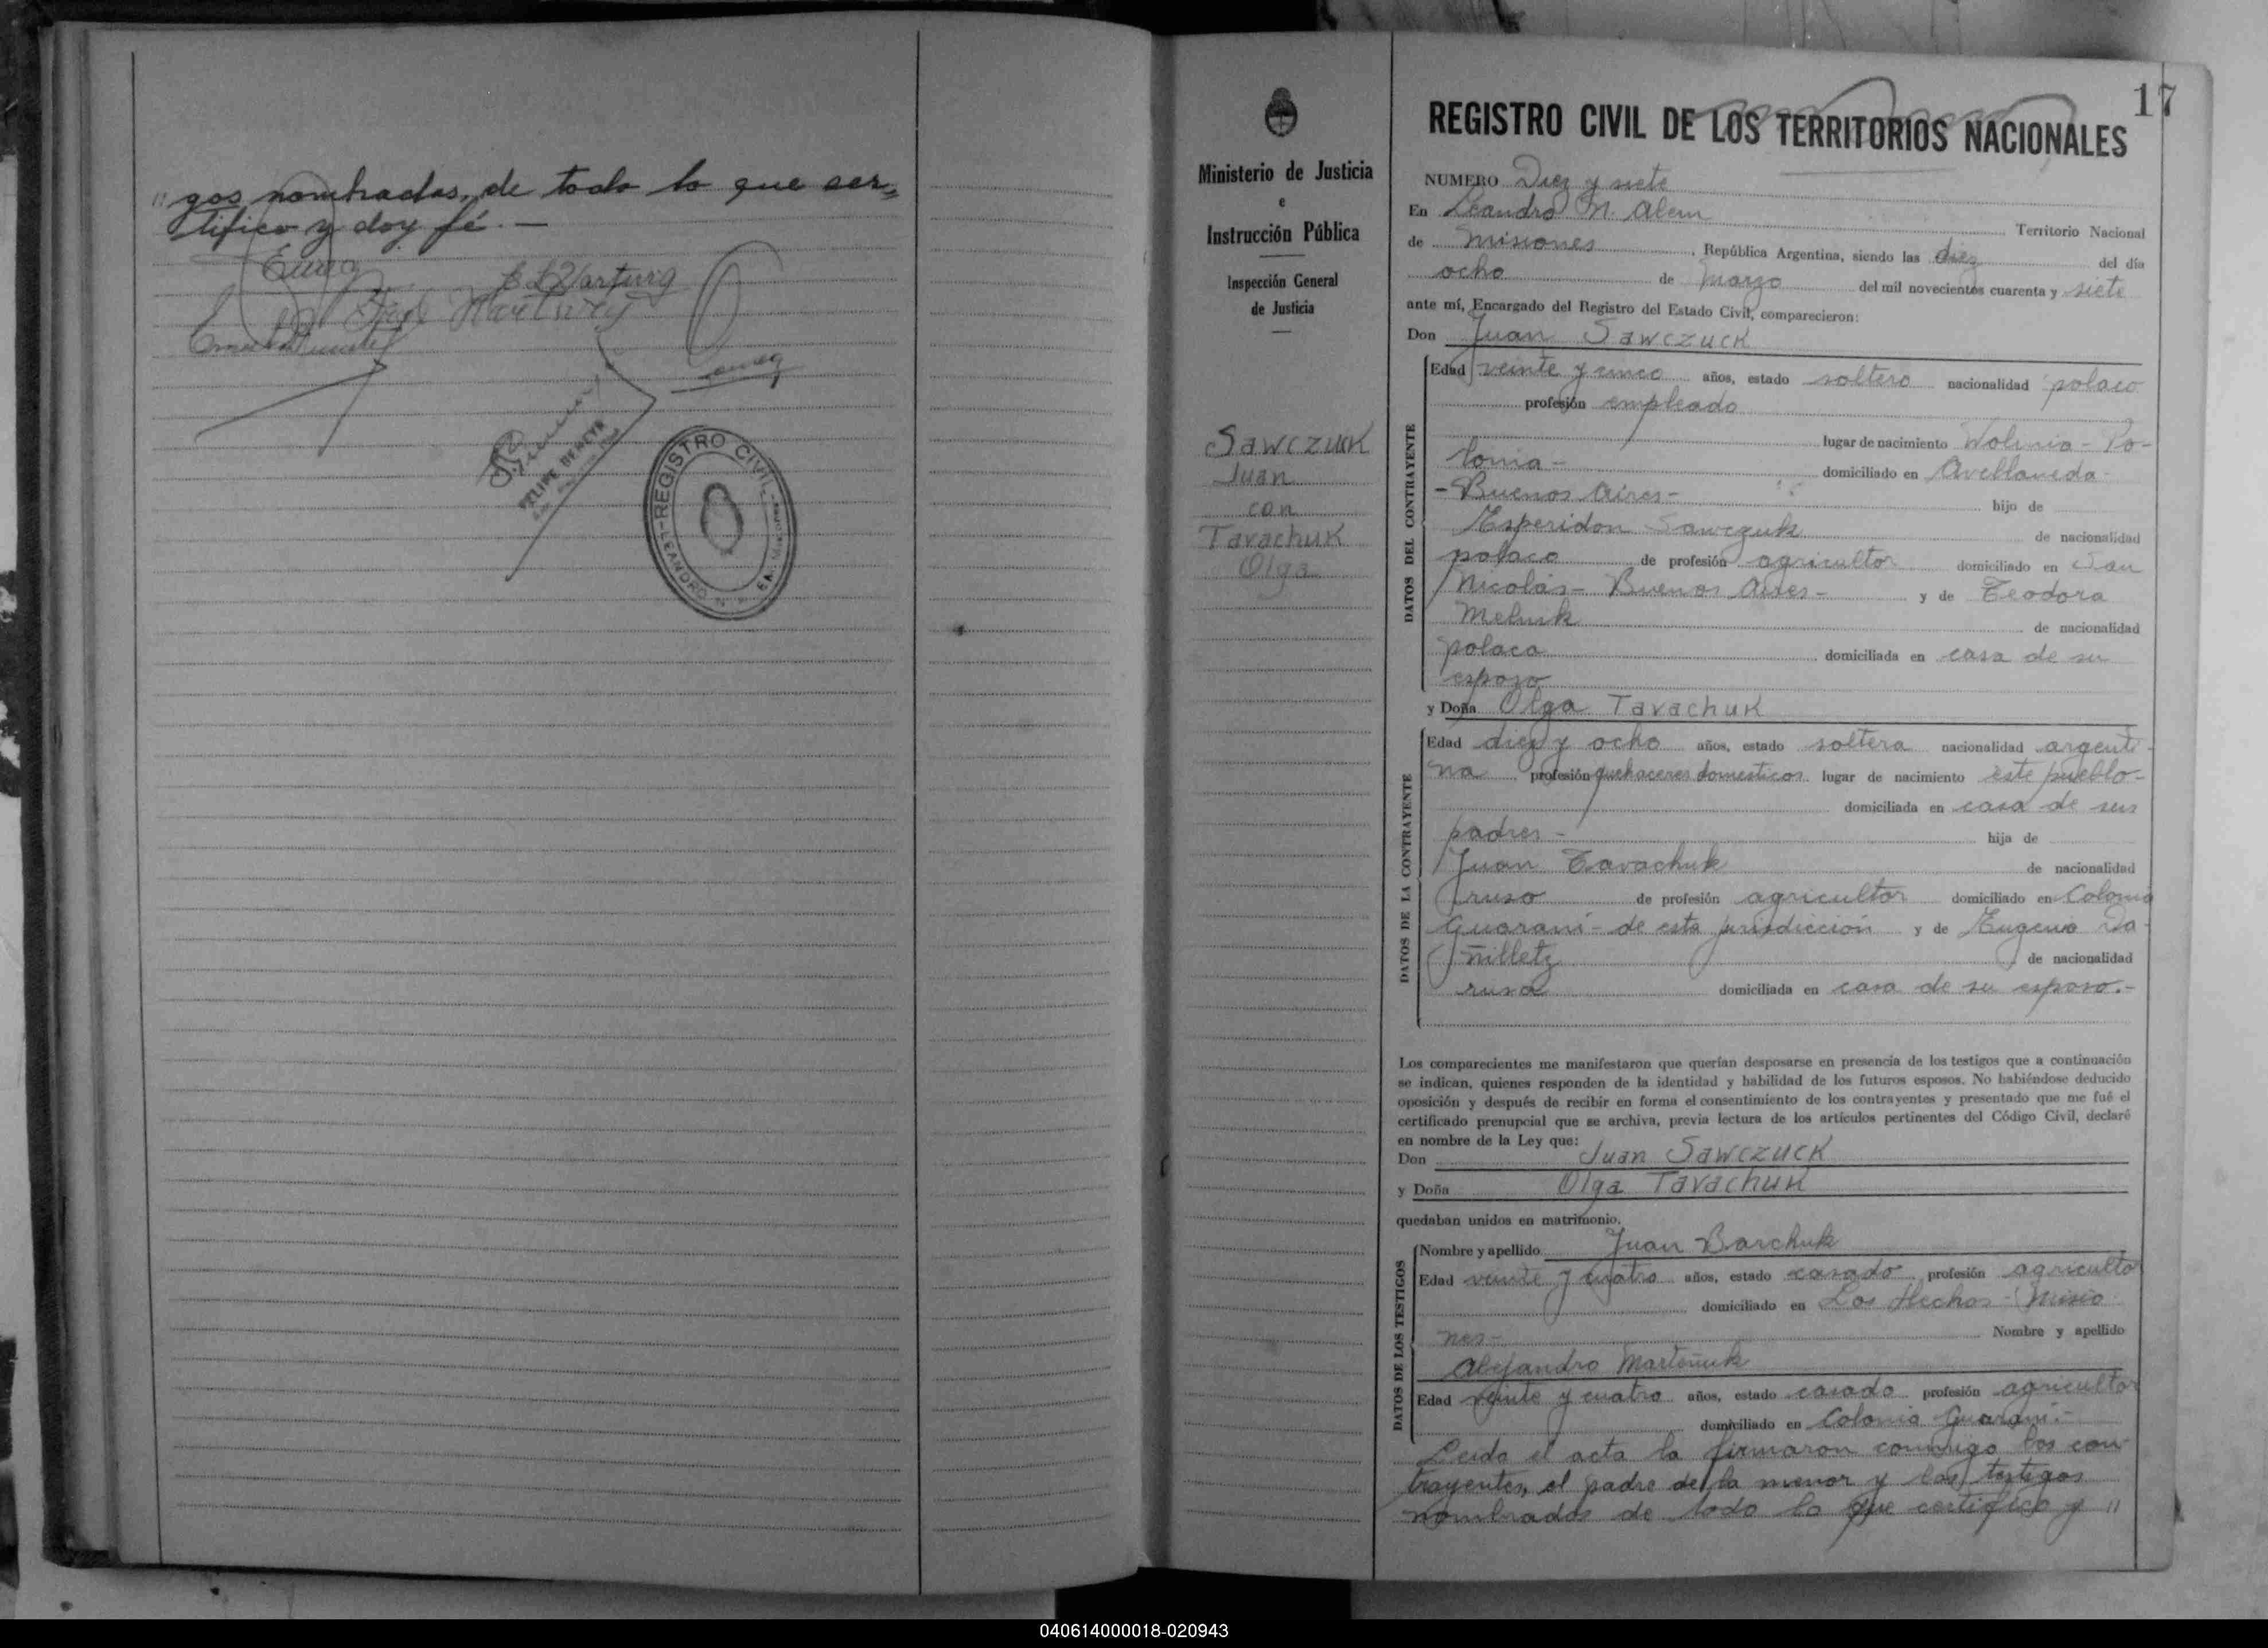 " gos nombrados, de todo lo que cer=
tifico y doy fé. —
FELIPE BENCYK
REGISTRO CIVIL
LEANDRO N.
Ministerio de Justicia
e
Instrucción Pública
Inspección General
de Justicia
Sawczuk
Juan
con
Tavachuk
Olga
17
REGISTRO CIVIL DE LOS TERRITORIOS NACIONALES
NUMERO Diez y siete
En Leandro N. Alem Territorio Nacional
de Misiones, República Argentina, siendo las diez del día
ocho de Marzo del mil novecientos cuarenta y siete
ante mí, Encargado del Registro del Estado Civil, comparecieron:
Don Juan Sawczuck
DATOS DEL CONTRAYENTE
Edad veinte y cinco años, estado soltero nacionalidad polaco
profesión empleado
lugar de nacimiento Wolinia - Po-
lonia - domiciliado en Avellaneda -
- Buenos Aires - hijo de
Esperidon Sawczuk de nacionalidad
polaco de profesión agricultor domiciliado en San
Nicolás - Buenos Aires - y de Teodora
Melnik de nacionalidad
polaca domiciliada en casa de su
esposo
y Doña Olga Tavachuk
DATOS DE LA CONTRAYENTE
Edad diez y ocho años, estado soltera nacionalidad argenti-
na profesión quehaceres domesticos lugar de nacimiento este pueblo -
domiciliada en casa de sus
padres - hija de
Juan Tavachuk de nacionalidad
ruso de profesión agricultor domiciliado en Colonia
Guaraní - de esta jurisdicción y de Eugenia Da-
ñilletz de nacionalidad
rusa domiciliada en casa de su esposo.-
Los comparecientes me manifestaron que querían desposarse en presencia de los testigos que a continuación
se indican, quienes responden de la identidad y habilidad de los futuros esposos. No habiéndose deducido
oposición y después de recibir en forma el consentimiento de los contrayentes y presentado que me fué el
certificado prenupcial que se archiva, previa lectura de los artículos pertinentes del Código Civil, declaré
en nombre de la Ley que:
Don Juan Sawczuck
y Doña Olga Tavachuk
quedaban unidos en matrimonio.
DATOS DE LOS TESTIGOS
Nombre y apellido Juan Barchuk
Edad veinte y cuatro años, estado casado profesión agricultor
domiciliado en Los Hechos - Misio
nes - Nombre y apellido
Alejandro Marteniuk
Edad veinte y cuatro años, estado casado profesión agricultor
domiciliado en Colonia Guaraní.-
Leida el acta la firmaron conmigo los con-
trayentes, el padre de la menor y los testigos
nombrados de todo lo que certifico y "
040614000018-020943